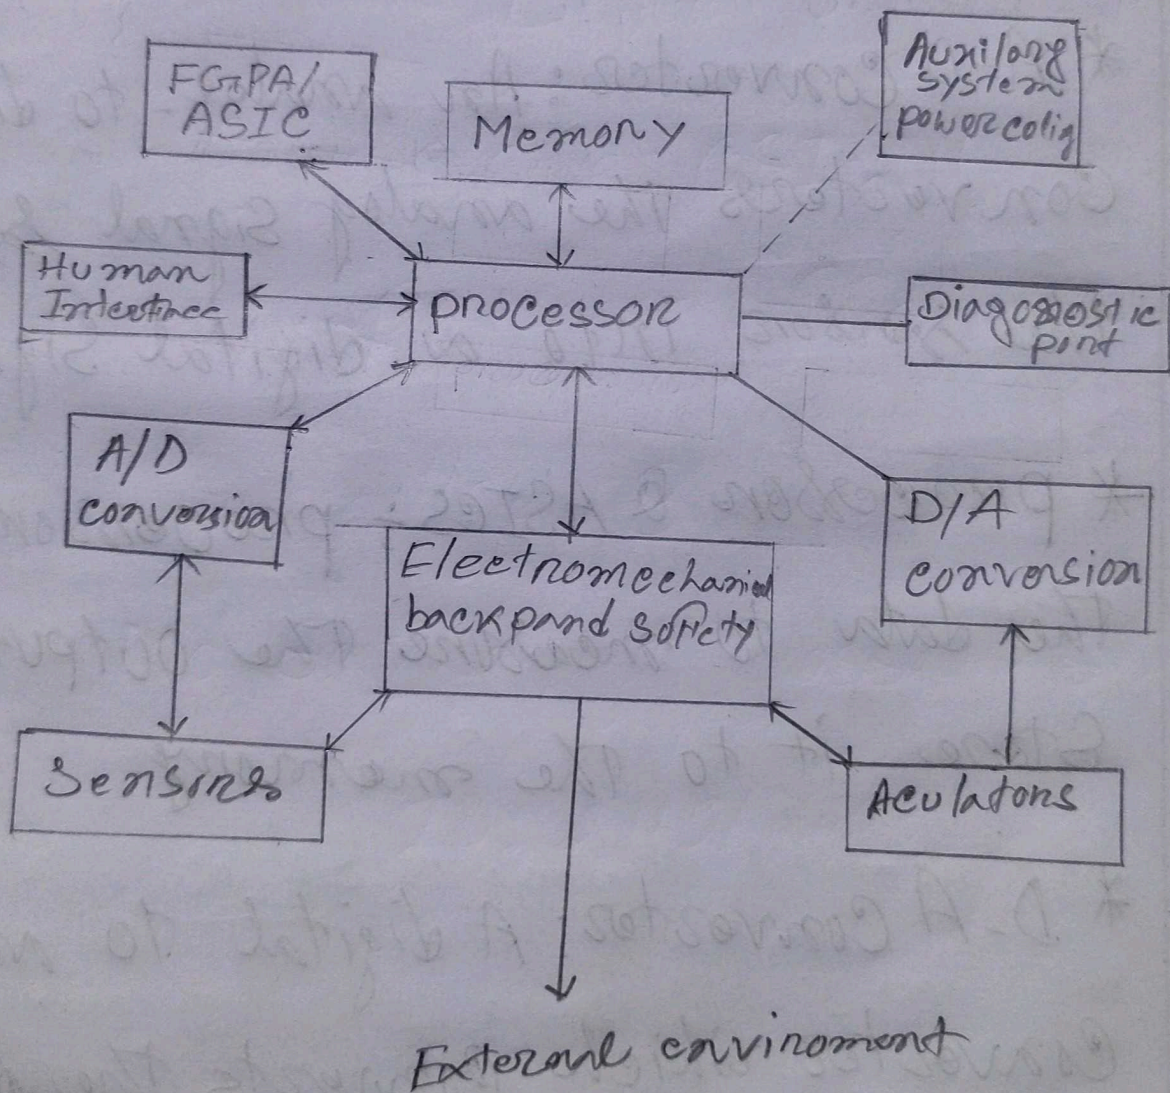 FGPA/
ASIC
Memory
Auxilary
system
power colig
Human
Interfinee
processor
Diagonostic
port
A/D
conversion
D/A
conversion
Electromeechanical
backpand sofiety
Sensors
Aculators
External enviroment